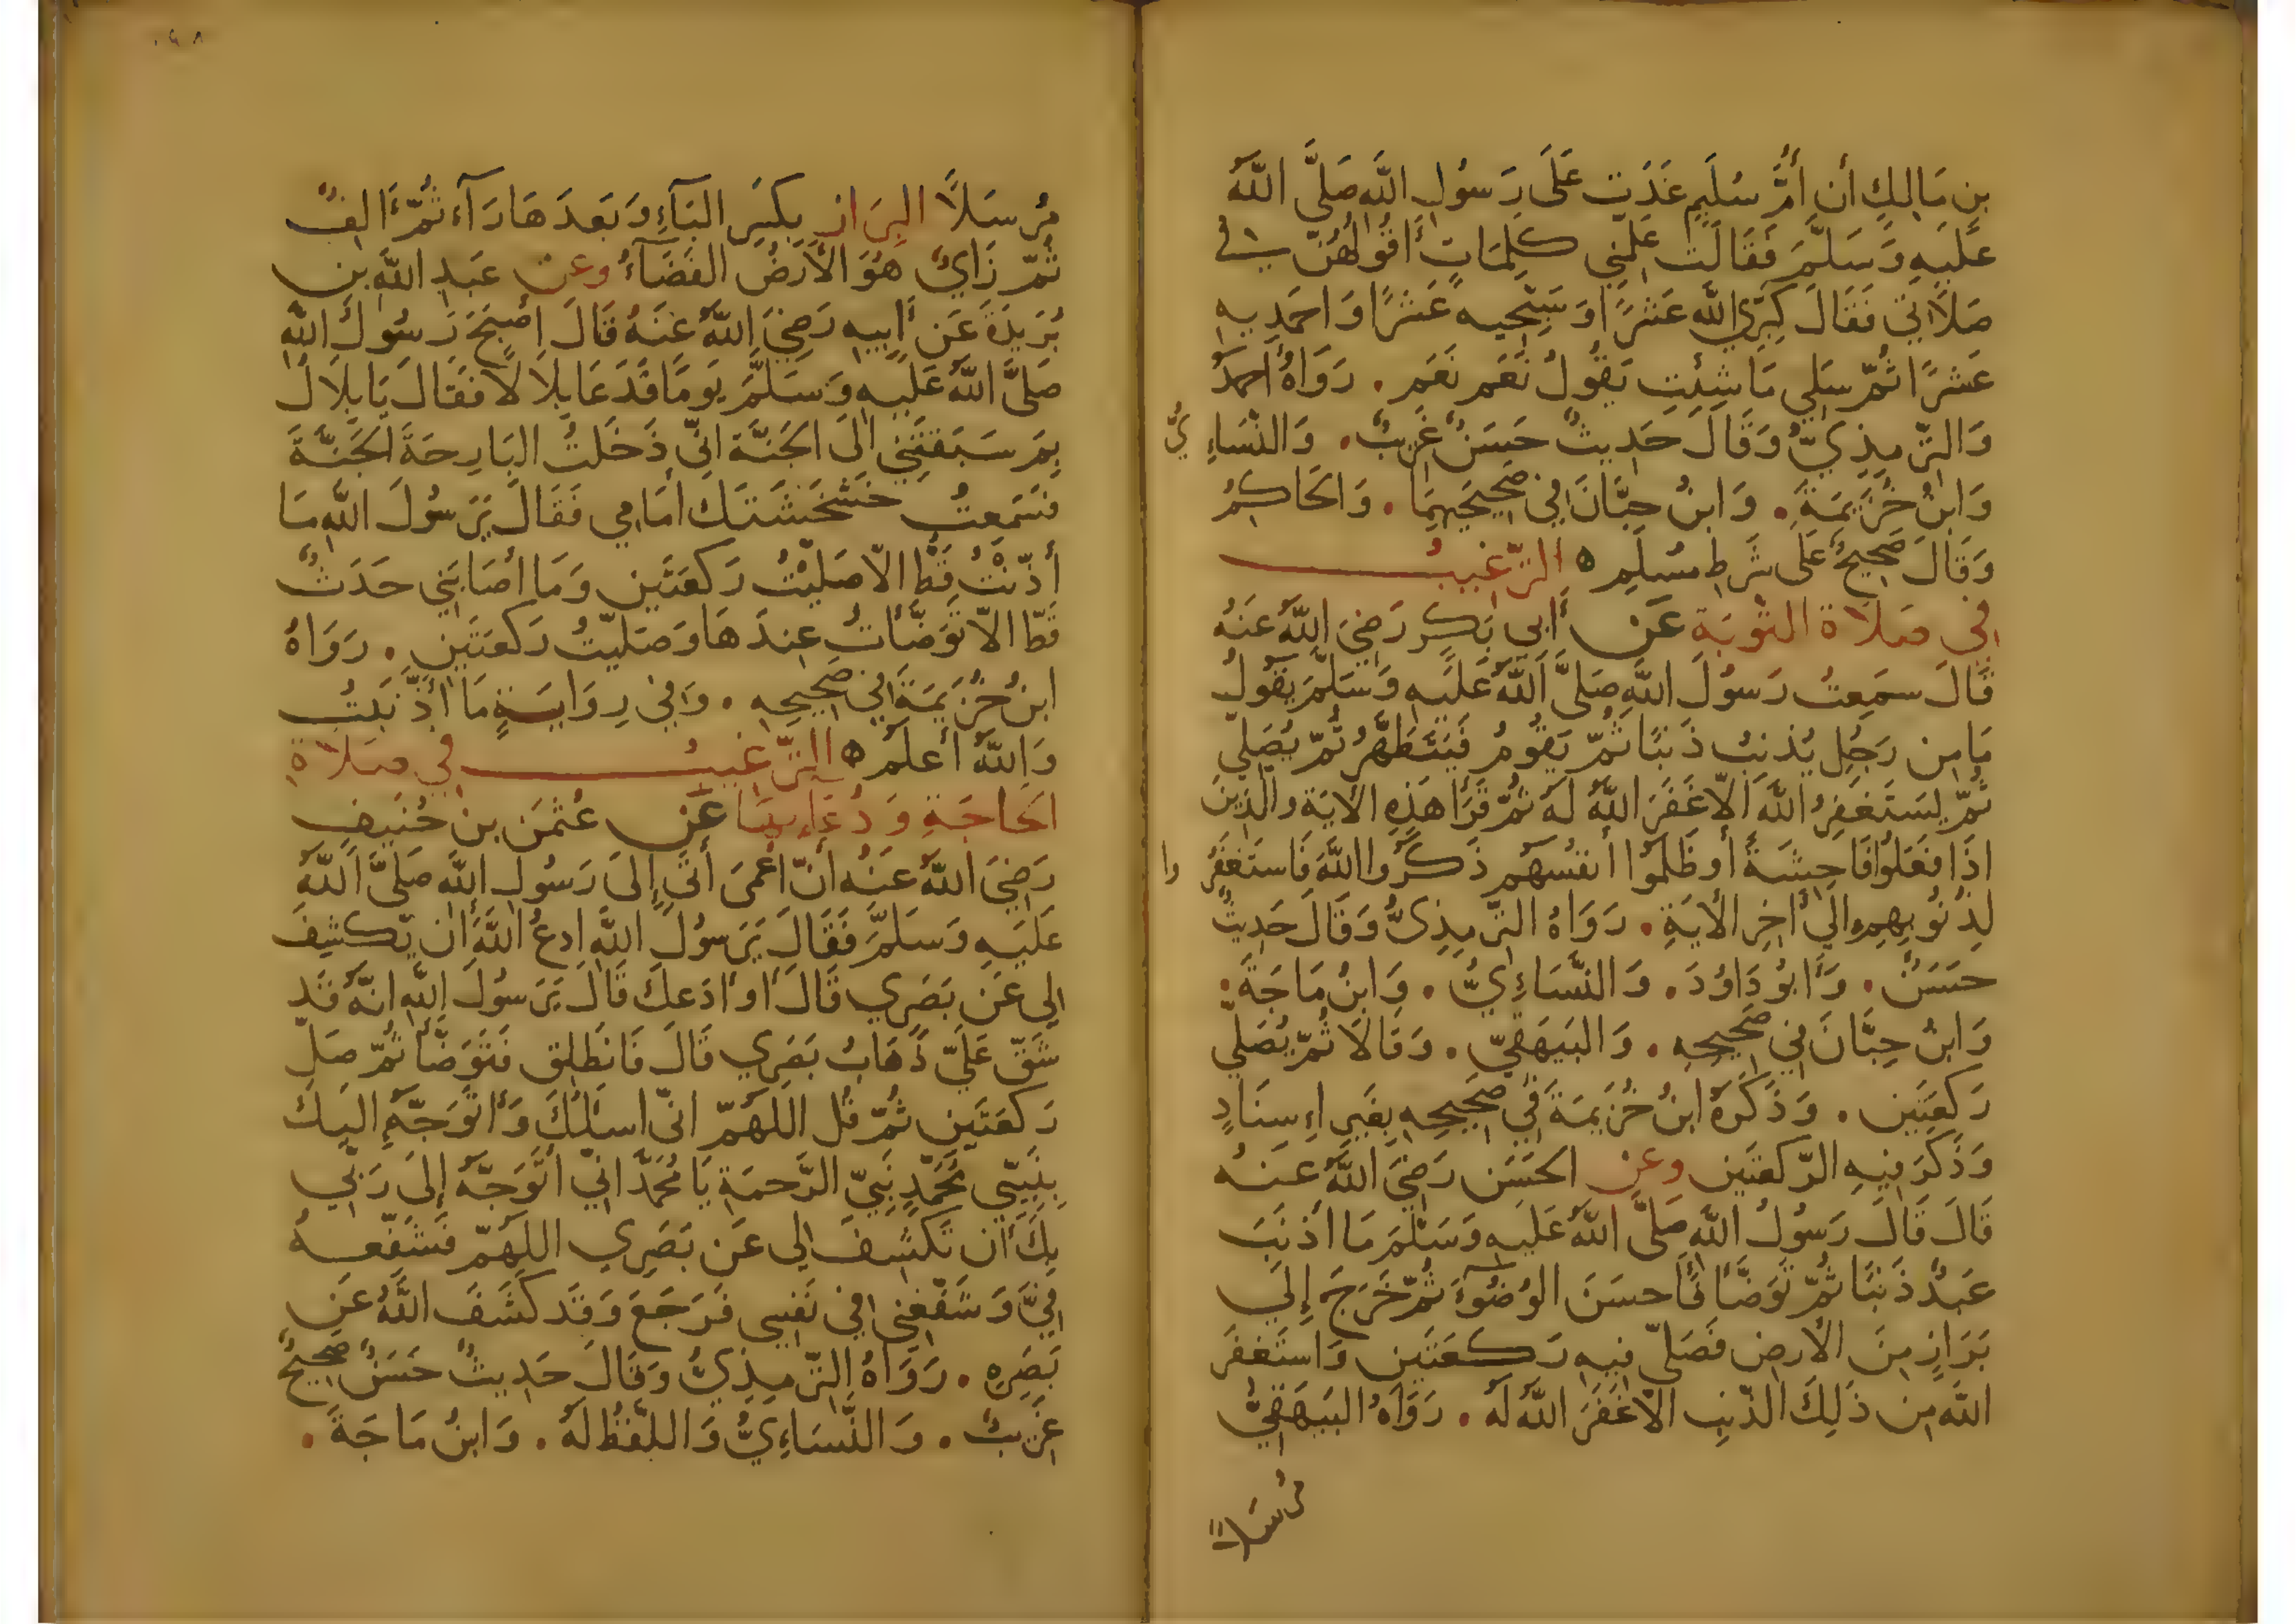 بنِ مَالِكٍ أن أُمَّ سُلَيمٍ غَدَت عَلَى رَسُولِ اللَّهِ صَلَّى اللَّهُ
عَلَيهِ وَسَلَّمَ فَقَالَت عَلِّمنِي كَلِمَاتٍ أقُولُهُنَّ فِي
صَلَاتي فَقَالَ كَبِّرِي اللَّه عَشرًا وَسَبِّحِيه عَشرًا وَاحمَدِيهِ
عَشرًا ثُمَّ سَلِي مَا شِئتِ يَقُولُ نَعَم نَعَم . رَوَاهُ أحمَدُ
وَالتِّرمِذِيُّ وَقَالَ حَدِيثٌ حَسَنٌ غَرِيبٌ . وَالنَّسَاءِيُّ
وَابنُ خُزَيمَةَ . وَابنُ حِبَّانَ فِي صَحِيحَيهِمَا . وَالحَاكِمُ
وَقَالَ صَحِيحٌ عَلَى شَرطِ مُسلِمٍ ه التَّرغِيبُ
فِي صَلَاة التَّوبَةِ عَن أَبي بَكرٍ رَضِيَ اللَّهُ عَنهُ
قَالَ سَمِعتُ رَسُولَ اللَّهِ صَلَّى اللَّهُ عَلَيهِ وَسَلَّمَ يَقُولُ
مَا مِن رَجُلٍ يُذنِبُ ذَنبًا ثُمَّ يَقُومُ فَيَتَطَهَّرُ ثُمَّ يُصَلِّي
ثُمَّ يَستَغفِرُ اللَّهَ الّا غَفَرَ اللَّهُ لَهُ ثُمَّ قَرَأ هَذِهِ الآيَة والَّذِينَ
اذَا فَعَلُوا فَاحِشَةً أَو ظَلَمُوا أنفُسَهُم ذَكَرُوا اللَّهَ فَاستَغفَرُوا
لِذُنُوبِهِم الَى أخِرِ الأيَةِ . رَوَاهُ التِّرمِذِىُّ وَقَالَ حَدِيثٌ
حَسَنٌ . وَأَبُو دَاوُدَ . وَالنَّسَاءِيُّ . وَابنُ مَاجَةَ .
وَابنُ حِبَّانَ فِي صَحِيحِهِ . وَالبَيهَقِيّ . وَقَالَا ثُمَّ يُصَلِّي
رَكعَتَينِ . وَذَكَرَهُ ابنُ خُزَيمَةَ فِي صَحِيحِهِ بِغَيرِ اءِسنَادٍ
وَذَكَرَ فِيهِ الرَّكعَتَينِ وعنِ الحَسَنِ رَضِيَ اللَّهُ عَنهُ
قَالَ قَالَ رَسُولُ اللَّهِ صَلَّى اللَّهُ عَلَيهِ وَسَلَّمَ مَا أذنَبَ
عَبدٌ ذَنبًا ثُمَّ تَوَضَّأ فَأحسَنَ الوُضُوءَ ثُمَّ خَرَجَ إلَى
بَرَازٍ مِنَ الأرضِ فَصَلَّى فِيهِ رَكعَتَينِ وَاستَغفَرَ
اللَّهَ مِن ذَلِكَ الذَّنبِ الّا غَفَرَ اللَّهُ لَهُ . رَوَاهُ البَيهَقِيُّ
مُرسَلًا
٠٩٨
مُرسَلًا البِرَاز بِكَسرِ البَآءِ وَبَعدَهَا رَآء ثُمَّ أَلِفٌ
ثُمَّ زَايٌ هُوَ الأَرضُ الفَضَآءُ وعن عَبدِ اللَّهِ بنِ
بُرَيدَةَ عَن أبِيهِ رَضِيَ اللَّهُ عَنهُ قَالَ أصبَحَ رَسُولُ اللَّهِ
صَلَّى اللَّهُ عَلَيهِ وَسَلَّمَ يَومًا فَدَعَا بِلَالًا فَقَالَ يَا بِلَالُ
بِمَ سَبَقتَنِي الَى الجَنَّة انّي دَخَلتُ البَارِحَةَ الجَنَّةَ
فَسَمِعتُ خَشخَشَتَكَ أمَامِي فَقَالَ يَرَسُولَ اللَّهِ مَا
أذَّنتُ قَطّ الّا صَلَّيتُ رَكعَتَينِ وَمَا أصَابَنِي حَدَثٌ
قَطّ الّا تَوَضَّأتُ عِندَهَا وَصَلَّيتُ رَكعَتَينِ . رَوَاهُ
ابنُ خُزَيمَةَ فِي صَحِيحِهِ . وَفِي رِوَايَةٍ مَا أذنَبتُ
وَاللَّهُ أعلَمُ ه التَّرغِيبُ فِي صَلَاةِ
الحَاجَةِ وَدُعَاءِهَا عَن عُثمَن بنِ حُنَيفٍ
رَضِيَ اللَّهُ عَنهُ أنَّ أعمَى أتَى إلَى رَسُولِ اللَّهِ صَلَّى اللَّهُ
عَلَيهِ وَسَلَّمَ فَقَالَ يَرَسُولَ اللَّهِ ادعُ اللَّهَ أن يَّكشِفَ
لِي عَن بَصَرِي قَالَ أو أدَعكَ قَالَ يَرَسُولَ اللَّهِ انَّهُ قَد
شَقَّ عَلَيَّ ذَهَابُ بَصَرِي قَالَ فَانطَلِق فَتَوَضَّأ ثُمَّ صَلِّ
رَكعَتَينِ ثُمَّ قُل اللَّهُمَّ انّي اسئَلُكَ وَأتَوَجَّهُ الَيكَ
بِنَبِيِّي مُحَمَّدٍ نَبِيِّ الرَّحمَةِ يَا مُحَمَّدُ انّي أتَوَجَّهُ إلَى رَبِّي
بِكَ أن تَكشِفَ لِي عَن بَصَرِي اللَّهُمَّ فَشَفِّعهُ
فِيَّ وَشَفِّعنِي فِي نَفسِي فَرَجَعَ وَقَد كَشَفَ اللَّهُ عَن
بَصَرِهِ . رَوَاهُ التِّرمِذِيُّ وَقَالَ حَدِيثٌ حَسَنٌ صَحِيحٌ
غَرِيبٌ . وَالنَّسَاءِيُّ وَاللَّفظُ لَهُ . وَابنُ مَاجَةَ .